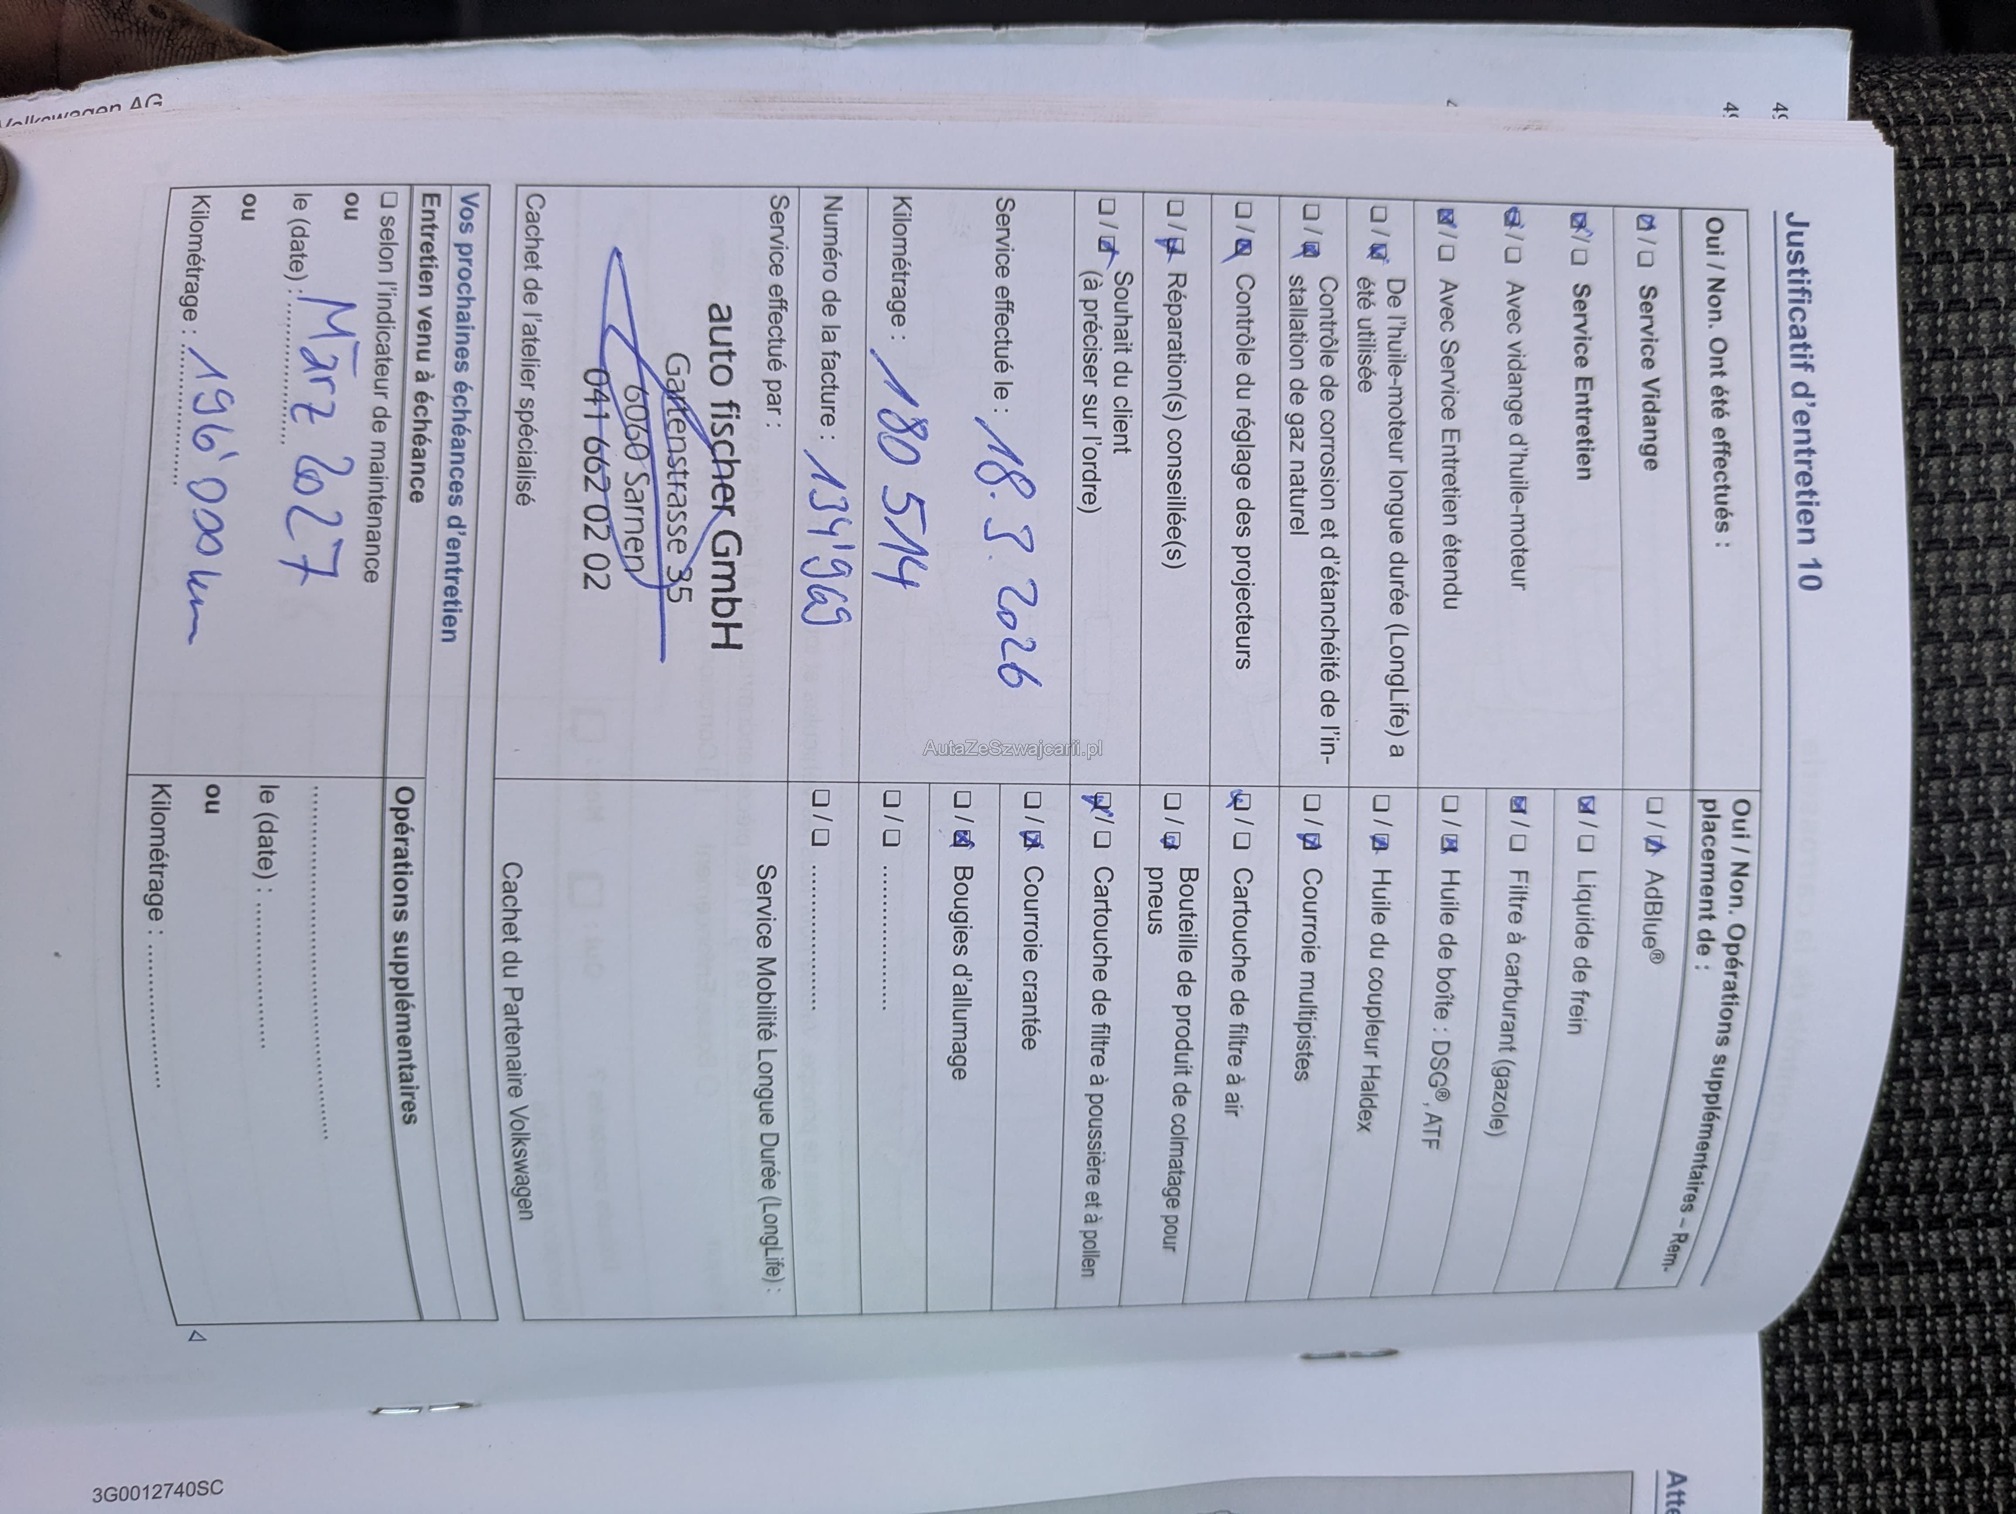 Volkswagen AG
Justificatif d'entretien 10
Oui / Non. Ont été effectués :
☒ / ☐ Service Vidange
☒ / ☐ Service Entretien
☒ / ☐ Avec vidange d'huile-moteur
☒ / ☐ Avec Service Entretien étendu
☐ / ☒ De l'huile-moteur longue durée (LongLife) a
été utilisée
☐ / ☒ Contrôle de corrosion et d'étanchéité de l'in-
stallation de gaz naturel
☐ / ☒ Contrôle du réglage des projecteurs
☐ / ☒ Réparation(s) conseillée(s)
☐ / ☒ Souhait du client
(à préciser sur l'ordre)
Service effectué le : 18. 3. 2026
Kilométrage : 180 514
Numéro de la facture : 134'969
Service effectué par :
auto fischer GmbH
Gartenstrasse 35
6060 Sarnen
041 662 02 02
Cachet de l'atelier spécialisé
Oui / Non. Opérations supplémentaires – Rem-
placement de :
☐ / ☒ AdBlue®
☒ / ☐ Liquide de frein
☒ / ☐ Filtre à carburant (gazole)
☐ / ☒ Huile de boîte : DSG®, ATF
☐ / ☒ Huile du coupleur Haldex
☐ / ☒ Courroie multipistes
☒ / ☐ Cartouche de filtre à air
☐ / ☒ Bouteille de produit de colmatage pour
pneus
☒ / ☐ Cartouche de filtre à poussière et à pollen
☐ / ☒ Courroie crantée
☐ / ☒ Bougies d'allumage
☐ / ☐ ..................
☐ / ☐ ..................
Service Mobilité Longue Durée (LongLife) :
Cachet du Partenaire Volkswagen
Vos prochaines échéances d'entretien
Entretien venu à échéance
☐ selon l'indicateur de maintenance
ou
le (date) : März 2027
ou
Kilométrage : 196'000 km
Opérations supplémentaires
..................
le (date) : ..................
ou
Kilométrage : ..................
AutaZeSzwajcarii.pl
3G0012740SC